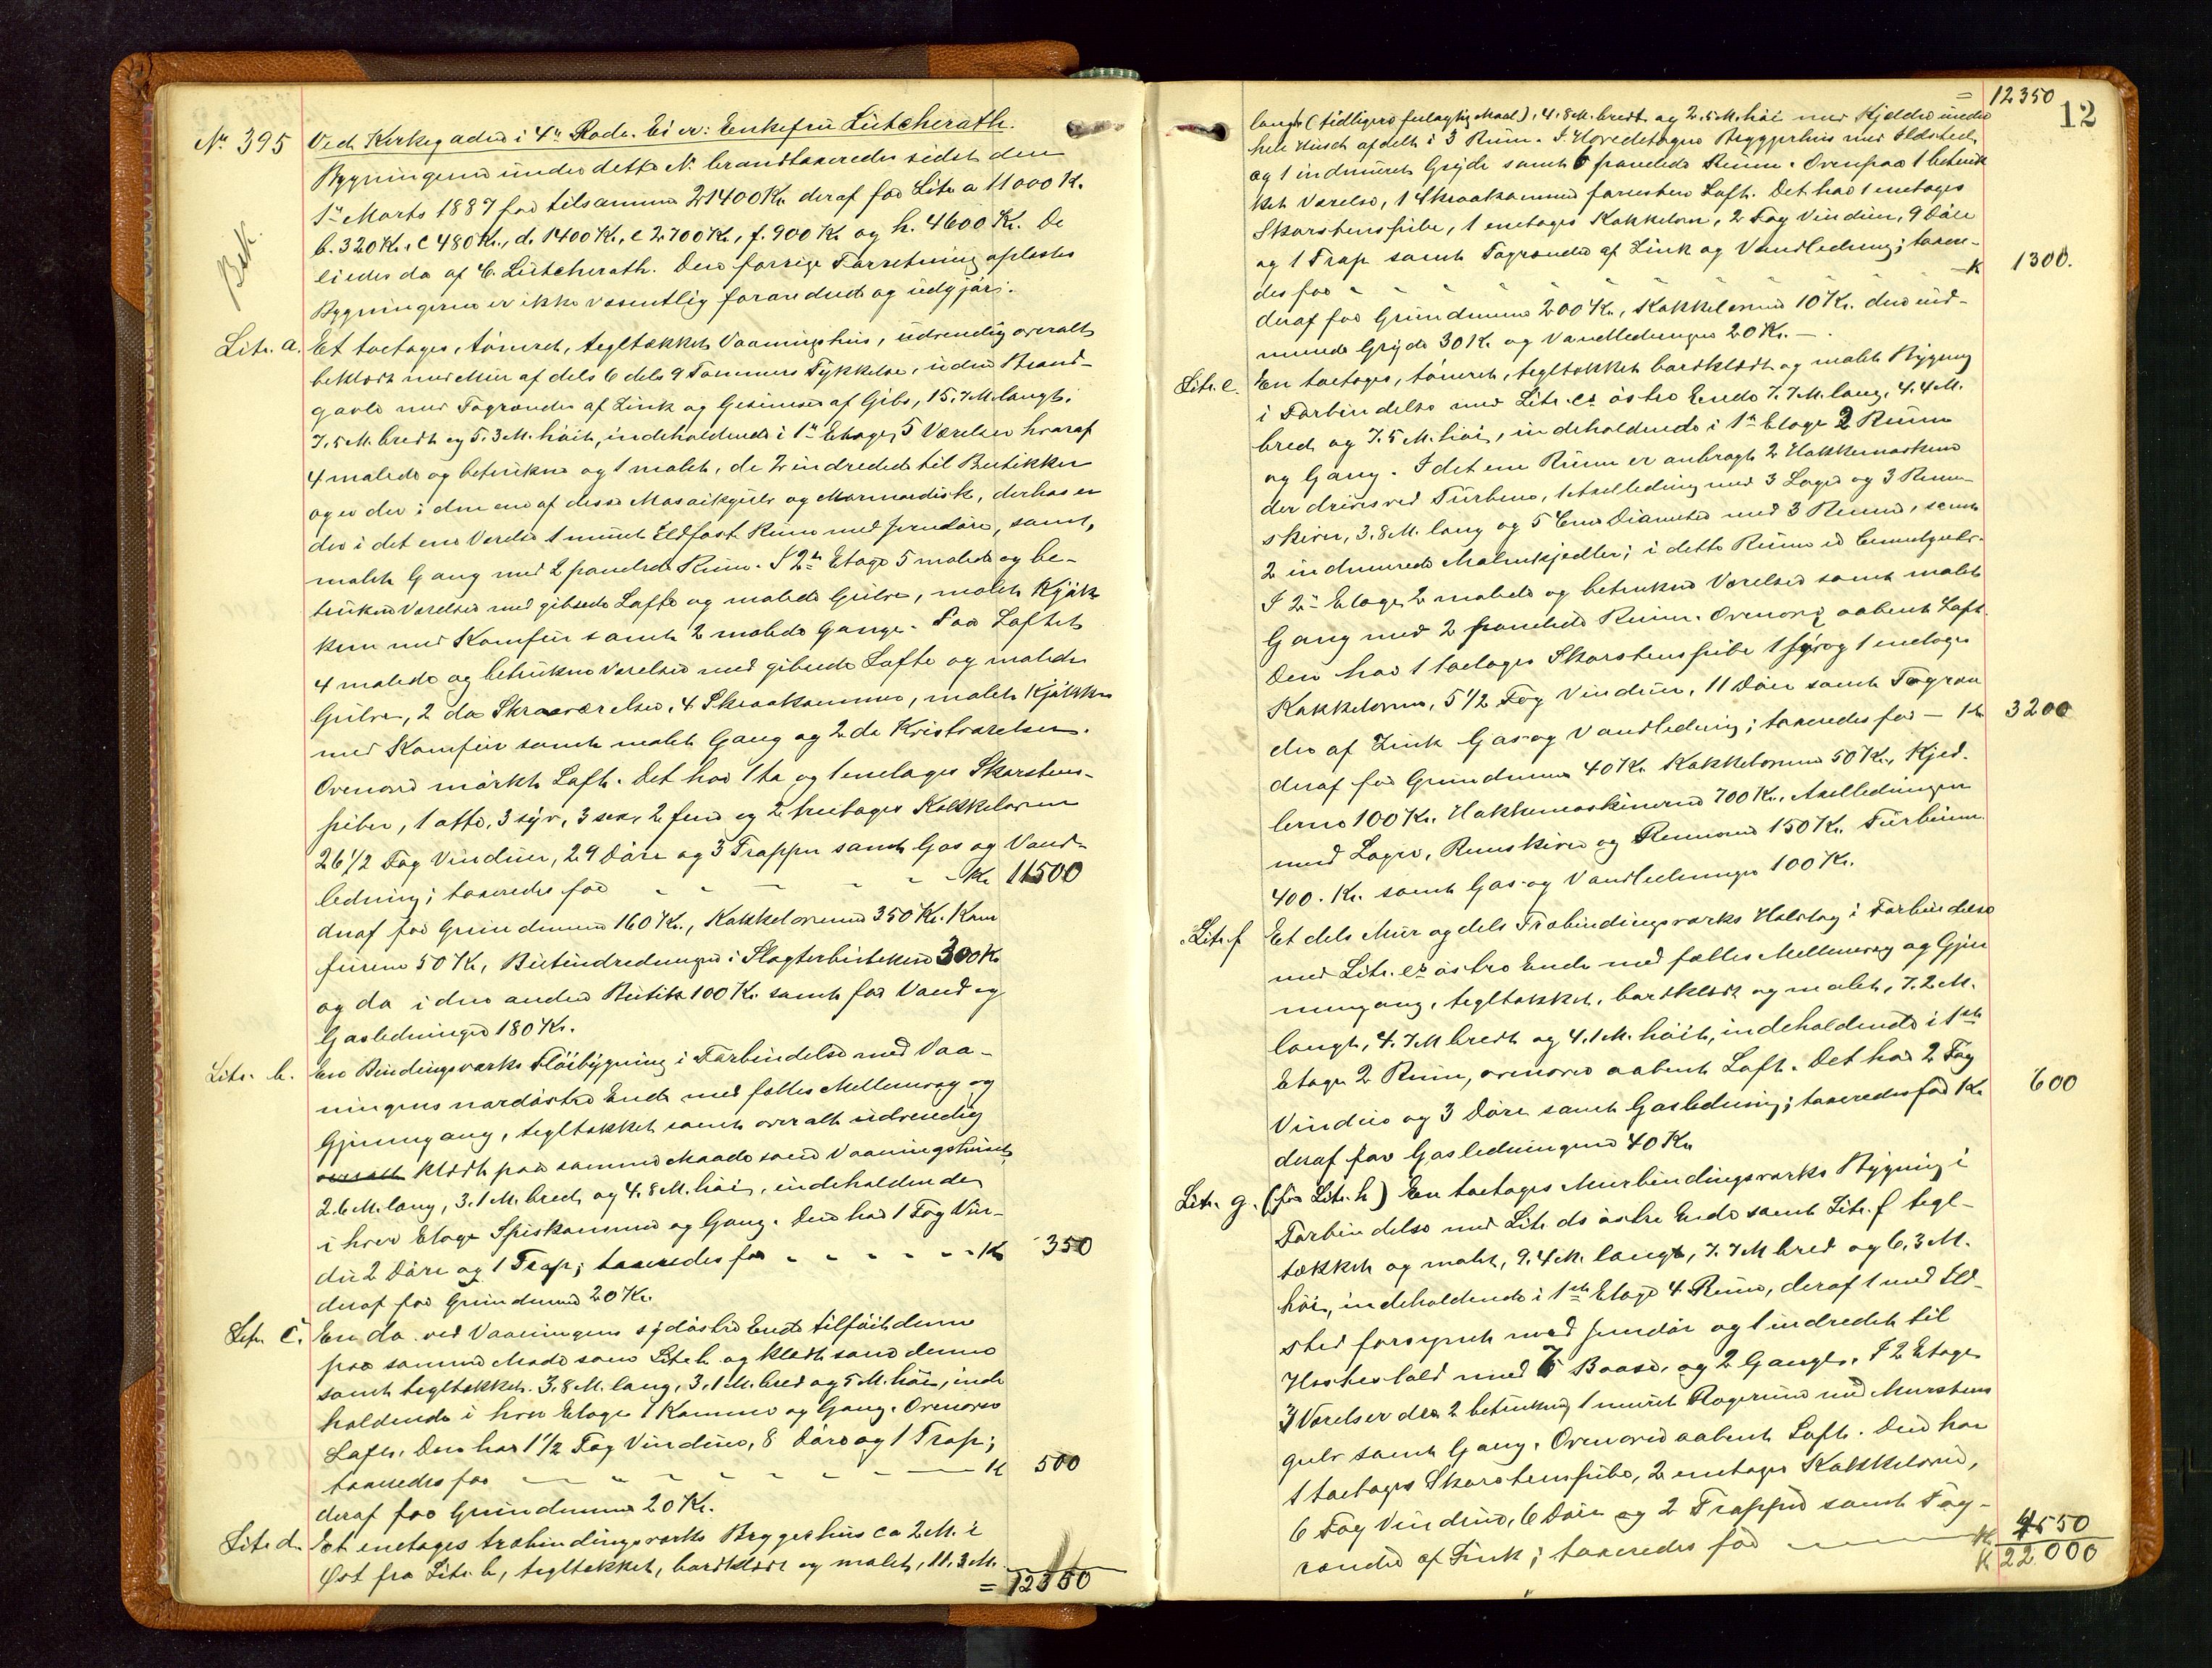 No 395 Ved Kirkegaden i 4de Rode. Eier: Enkefru Lütcherath.
Bygningerne under dette No brandtaxeredes sidst den
1ste Marts 1887 for tilsammen 21400 Kr. deraf for Litr a 11000 K.
b. 320 Kr. c 480 Kr., d. 1400 Kr., e 2700 Kr., f. 900 Kr. og h. 4600 Kr. De
Bet.
eiedes da af C. Lütcherath. Den forrige Forretning oplæstes
Bygningerne er ikke væsentlig forandrede og udgjør:
Litr. a. Et toetages, tømret, tegltækket Vaaningshus, udvendig overalt
beklædt med Mur af dels 6 dels 9 Tommers Tykkelse, uden Brand-
gavle med Tagrender af Zink og Gesimser af Gibs, 15.7 M. langt,
7.5 M. bredt og 5.3 M. høit, indeholdende i 1ste Etage, 5 Værelser hvoraf
4 malede og betrukne og 1 malet, de 2 indredede til Butikker
og er der i den ene af disse Mosaikgulv og Marmordisk, derhos er
der i det ene Værelse 1 muret Ildfast Rum med Jerndøre, samt
malet Gang med 2 panelede Rum. I 2den Etage 5 malede og be-
trukne Værelser med gibsede Lofte og malede Gulve, malet Kjøk
ken med Komfur samt 2 malede Gange. Paa Loftet
4 malede og betrukne Værelser med gibsede Lofte og malede
Gulve, 2 do Skraaværelser, 4 Skraakammer, malet Kjøkken
med Komfur samt malet Gang og 2 do Kvistværelser.
Ovenover mørkt Loft. Det har 1 to og 1 enetages Skorstens-
piber, 1 otte, 3 syv, 3 sex, 2 fem og 2 treetages Kakkelovne
26 1/2 Fag Vinduer, 29 Døre og 3 Trapper samt Gas og Vand-
ledning; taxeredes for - - - - - - Kr 11500
deraf for Grundmuren 160 Kr., Kakkelovnene 350 Kr. Kom
furene 50 Kr, Butindredningen i Slagterbutikken 300 Kr
og do i den anden Butik 100 Kr. samt for Vand og
Gasledningen 180 Kr.
Litr. b. En Bindingsværks Fløibygning i Forbindelse med Vaa-
ningens nordøstre Ende med fælles Mellemvæg og
Gjennemgang, tegltækket samt overalt udvendig
overalt klædt paa samme Maade som Vaaningshuset,
2.6 M. lang, 3.1 M. bred og 4.8 M. høi, indeholdende
i hver Etage Spiskammer og Gang. Den har 1 Fag Vin-
du 2 Døre og 1 Trap; taxeredes for - - - - - - Kr 350
deraf for Grundmuren 20 Kr.
Litr. c. En do ved Vaaningens sydøstre Ende tilføiet denne
paa samme Made som Litr b og klædt som denne
samt tegltækket. 3.8 M. lang, 3.1 M. bred og 5 M. høi, inde
holdende i hver Etage 1 Kammer og Gang. Ovenover
Loft. Den har 1 1/2 Fag Vinduer, 8 Døre og 1 Trap;
taxeredes for - - - - - - K 500
deraf for Grundmuren 20 Kr.
Litr d. Et enetages træbindingsværks Bryggerhus ca 2 M. i
Øst fra Litr. b, tegltækket, bordklædt og malet, 11.3 M.
= 12350
= 12350
12
langt (tidligere feilagtig Maal), 4.8 M. bredt og 2.5 M. høi med Kjelder under
hele Huset afdelt i 3 Rum. I Hovedetagen Bryggerhus med Ildsted
og 1 indmuret Gryde samt 6 panelede Rum. Ovenpaa 1 betruk
ket Værelse, 1 Skraakammer forresten Loft. Det har 1 enetages
Skorstenspibe, 1 enetages Kakkelovn, 2 Fag Vinduer, 9 Døre
og 1 Trap samt Tagrender af Zink og Vandledning; taxere-
des for - - - - - - K 1300.
deraf for Grundmuren 200 Kr, Kakkelovnen 10 Kr. den ind-
murede Gryde 30 K. og Vandledningen 20 Kr. —
Litr. e. En toetages, tømret, tegltækket bordklædt og malet Bygning
i Forbindelse med Litr. c's østre Ende 7.7 M. lang, 4.4 M.
bred og 7.5 M. høi, indeholdende i 1ste Etage 2 Rum
og Gang. I det ene Rum er anbragt 2 Hakkemaskiner
der drives ved Turbine, 1 Axelledning med 3 Lager og 3 Rem-
skiver, 3.8 M. lang og 5 Cm Diameter med 3 Remme, samt
2 indmurede Malmkjedler; i dette Rum er Cementgulv.
I 2den Etage 2 malede og betrukne Værelser samt malet
Gang med 2 panelede Rum. Ovenover aabent Loft
Den har 1 toetages Skorstenspibe 1 fyr og 1 enetages
Kakkelovn, 5 1/2 Fag Vinduer, 11 Døre samt Tagren
der af Zink Gas- og Vandledning; taxeredes for — K 3200
deraf for Grundmuren 40 Kr. Kakkelovnene 50 Kr., Kjed-
lerne 100 Kr. Hakkemaskinerne 700 Kr., Axelledningen
med Lagre, Remskiver og Remmene 150 Kr. Turbinen
400. Kr. samt Gas- og Vandledningen 100 Kr.
Litr. f Et dels Mur og dels Træbindingsværks Halvtag i Forbindelse
med Litr. e's østre Ende med fælles Mellemvæg og Gjen
nemgang, tegltækket, bordklædt og malet, 7.2 M.
langt, 4.7 M bredt og 4.1 M. høit, indeholdende i 1ste
Etage 2 Rum, ovenover aabent Loft. Det har 2 Fag
Vinduer og 3 Døre samt Gasledning; taxeredes for Kr 600
deraf for Gasledningen 40 Kr
Litr. g. (før Litr. h) En toetages Murbindingsværks Bygning i
Forbindelse med Litr d's østre Ende samt Litr. f tegl-
tækket og malet, 9.4 M. langt, 7.7 M bred og 6.3 M.
høi, indeholdende i 1ste Etage 4 Rum, deraf 1 med Ild-
sted forsynet med Jerndør og 1 indredet til
Hestestald med 5 Baase, og 2 Gange. I 2 Etage
3 Værelser do 2 betrukne, 1 muret Røgerum med Murstens
gulv samt Gang. Ovenover aabent Loft. Den har
1 toetages Skorstenspibe, 2 enetages Kakkelovne,
6 Fag Vinduer, 6 Døre og 2 Trapper samt Tag-
render af Zink; taxeredes for — K. 4550
K 22000